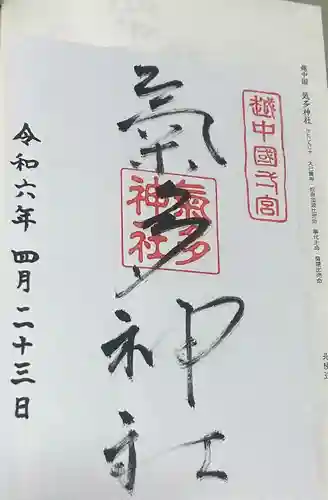 越中國 気多神社
越中國一宮
氣多神社
氣多
神社
令和六年 四月二十三日